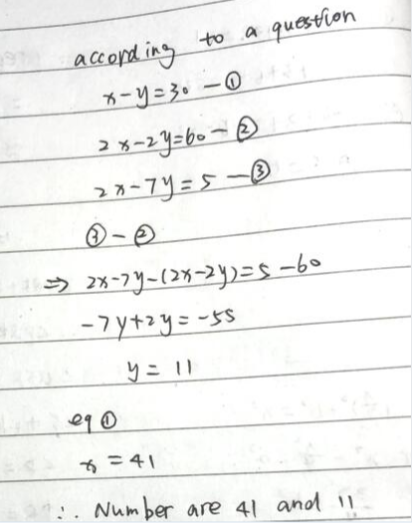 according to a question
x-y=30 -①
2x-2y=60 -②
2x-7y=5 -③
③-②
⇒ 2x-7y-(2x-2y)=5-60
-7y+2y=-55
y=11
eq ①
x=41
∴ Number are 41 and 11